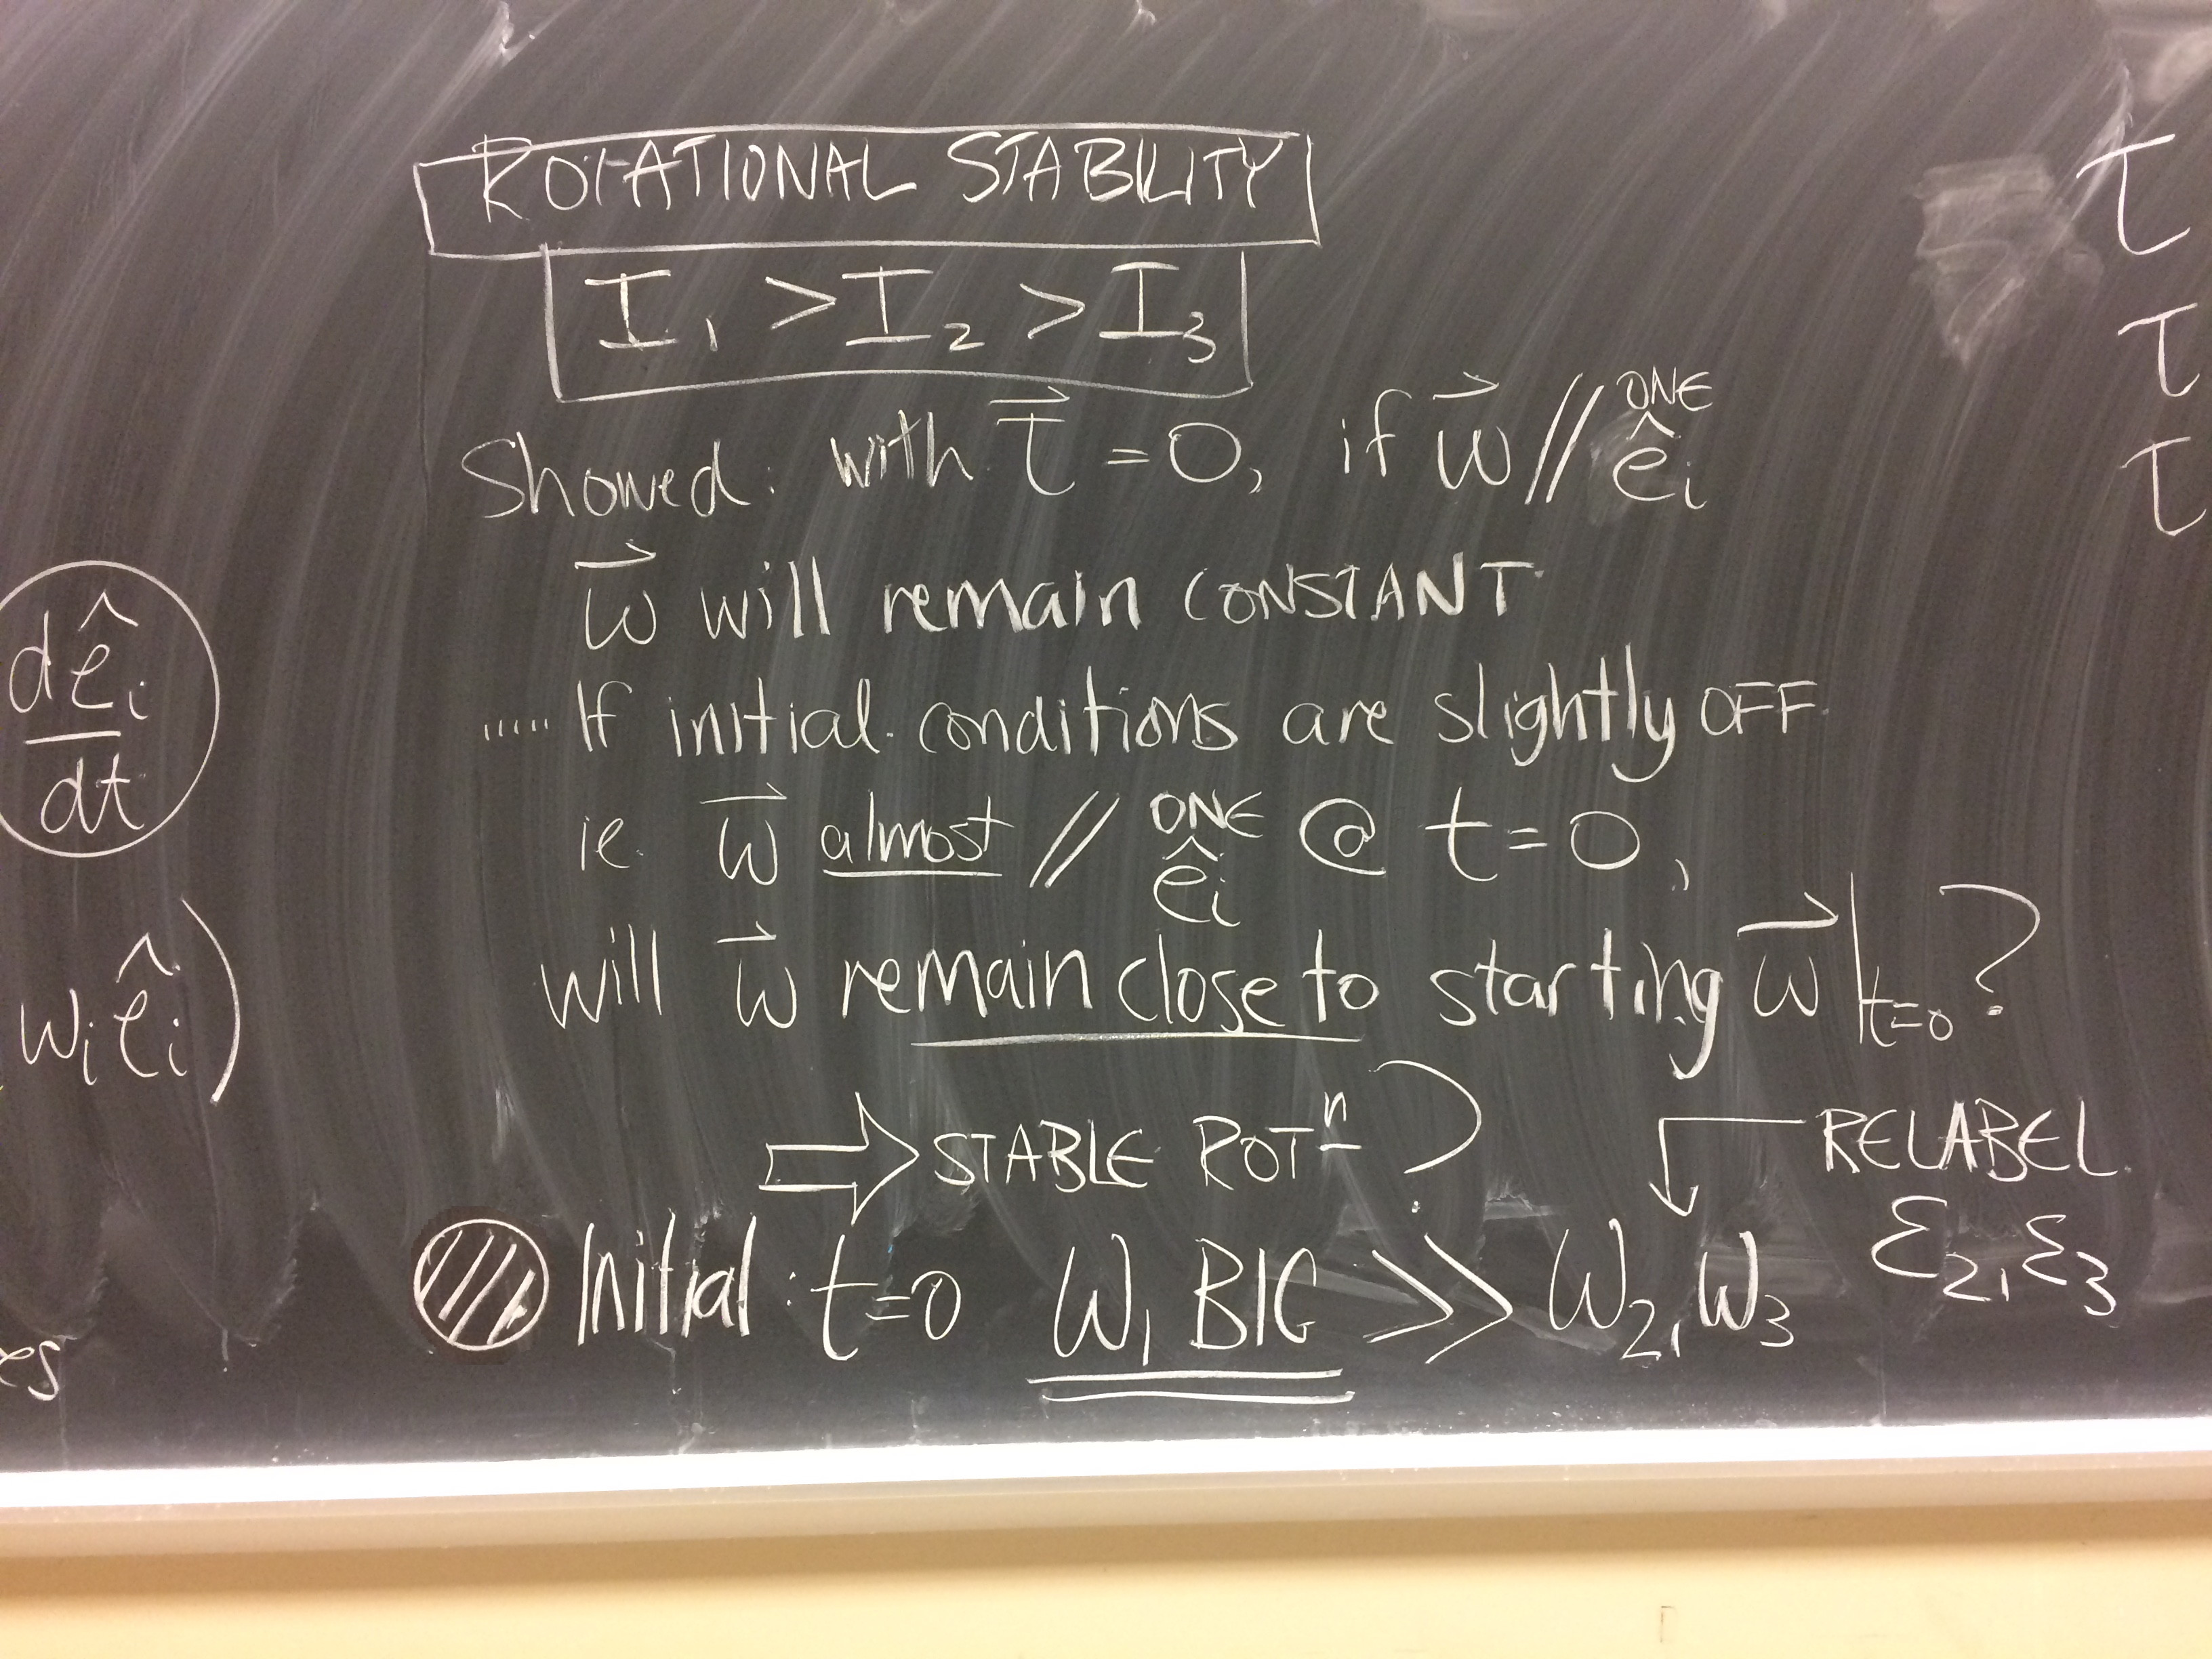 ROTATIONAL STABILITY
I₁ > I₂ > I₃
Showed: with τ⃗ = 0, if ω⃗ // ONE êᵢ
ω⃗ will remain CONSTANT
..... If initial conditions are slightly OFF
ie. ω⃗ almost // ONE êᵢ @ t=0,
will ω⃗ remain close to starting ω⃗|t=0 ?
⇒ STABLE ROTⁿ ?
RELABEL
Initial: t=0 ω₁ BIG >> ω₂, ω₃ ε₂, ε₃
dêᵢ
dt
ωᵢêᵢ)
es
τ
τ
τ